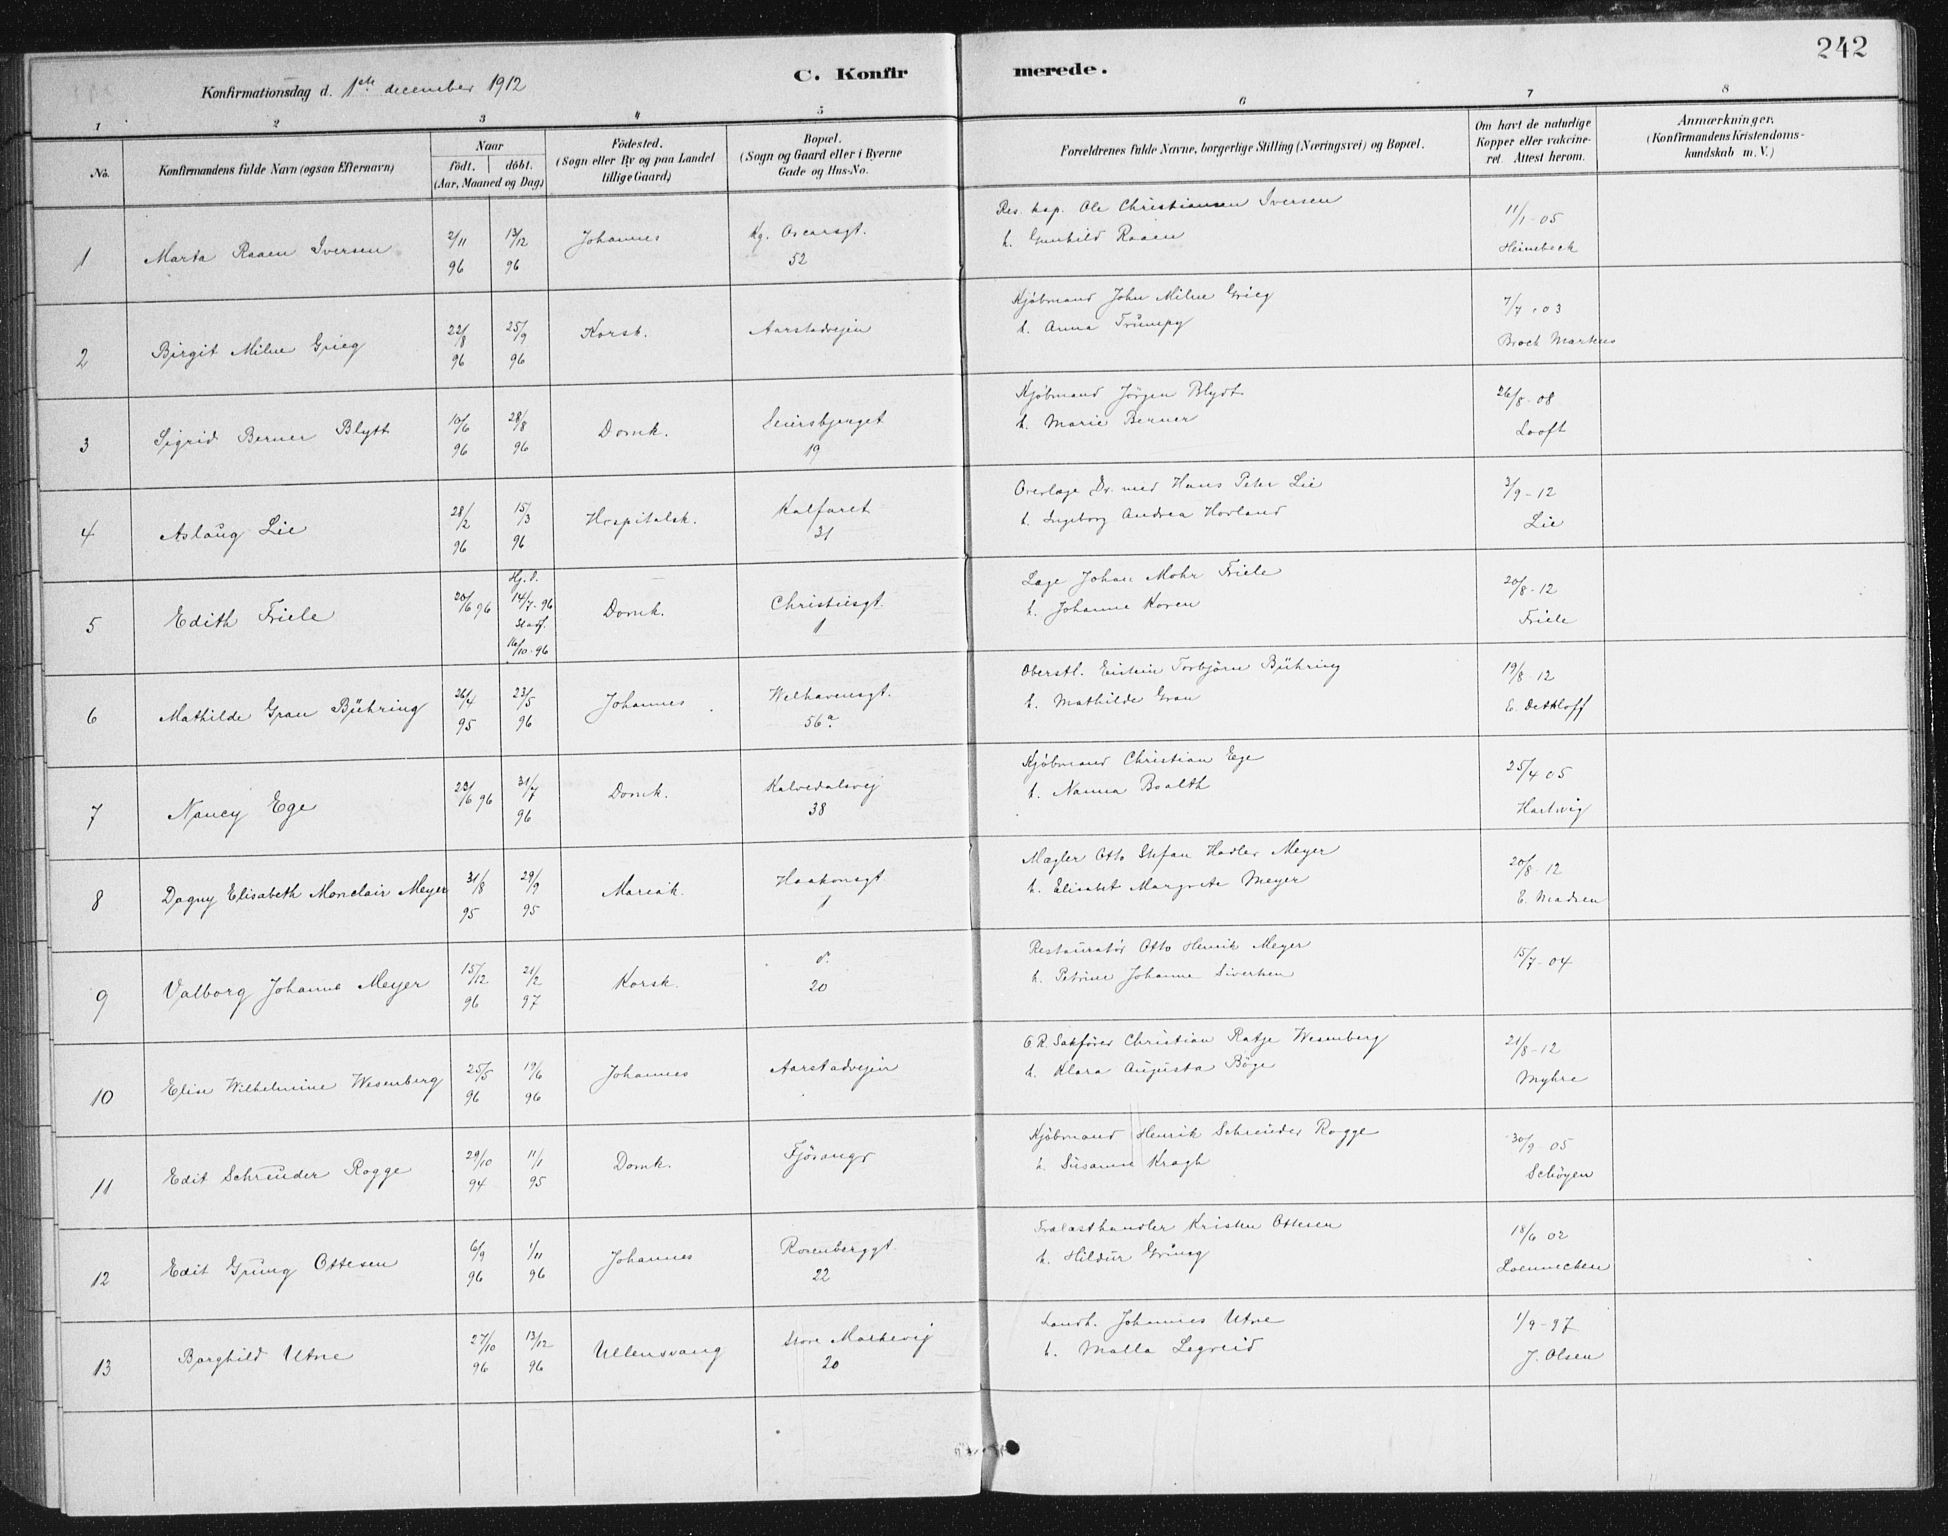 242
C. Konfirmerede.
Konfirmationsdag d. 1ste december 1912
1 2 3 4 5 6 7 8
No.
Konfirmandens fulde Navn (ogsaa Efternavn)
Naar
födt. döbt.
(Aar, Maaned og Dag)
Födested.
(Sogn eller By og paa Landet
tillige Gaard)
Bopæl.
(Sogn og Gaard eller i Byerne
Gade og Hus-No.
Forældrenes fulde Navne, borgerlige Stilling (Næringsvei) og Bopæl.
Om havt de naturlige
Kopper eller vakcine-
ret. Attest herom.
Anmærkninger.
(Konfirmandens Kristendoms-
kundskab m. V.)
1 Marta Raaen Iversen 2/11 96 13/12 96 Johannes Kg. Oscarsgt. 52
Res. kap. Ole Christiansen Iversen
h. Gunhild Raaen
11/1-05
Heimbeck
2 Birgit Milne Grieg 22/8 96 25/9 96 Korsk. Aarstadveien
Kjöbmand John Milne Grieg
h. Anna Trumpy
7/7-03
Broch Martens
3 Sigrid Berner Blytt 10/6 96 28/8 96 Domk. Leiersbjerget 19
Kjöbmand Jörgen Blydt
h. Marie Berner
26/8-08
Looft
4 Aslaug Lie 28/2 96 15/3 96 Hospitalsk. Kalfaret 31
Overlæge Dr. med Hans Peter Lie
h. Ingeborg Andrea Hovland
3/9-12
Lie
5 Edith Friele 20/6 96 Hj. d. 14/7-96 Stadf. 16/10-96 Domk. Christiesgt. 1
Læge Johan Mohr Friele
h. Johanne Koren
20/8-12
Friele
6 Mathilde Gran Bühring 26/4 95 23/5 96 Johannes Welhavensgt. 56a
Oberstl. Eistein Torbjörn Bühring
h. Mathilde Gran
19/8-12
E. Dethloff
7 Nancy Ege 23/6 96 31/7 96 Domk. Kalvedalsvej 38
Kjöbmand Christian Ege
h. Nanna Boalth
25/4 05
Hartwig
8 Dagny Elisabeth Monclair Meyer 31/8 95 29/9 95 Mariak. Haakonsgt. 1
Mægler Otto Stefan Hadler Meyer
h. Elisabet Margrete Meyer
20/8-12
E. Madsen
9 Valborg Johanne Meyer 15/12 96 21/2 97 Korsk. d. 20
Restauratör Otto Henrik Meyer
h. Petrine Johanne Sivertsen
15/7-04
10 Elise Wilhelmine Wesenberg 25/5 96 19/6 96 Johannes Aarstadveien
O.R. Sakförer Christian Ratje Wesenberg
h. Klara Augusta Böge
21/8-12
Myhre
11 Edit Schreuder Rogge 29/10 94 11/1 95 Domk. Fjösanger
Kjöbmand Henrik Schreuder Rogge
h. Susanne Kragh
30/9-05
Schöyen
12 Edit Grung Ottesen 6/9 96 1/11 96 Johannes Rosenberggt 22
Trælasthandler Kristen Ottesen
h. Hildur Grung
18/6 02
Loennechen
13 Borghild Utne 27/10 96 13/12 96 Ullensvang Store Markevej 20
Landh. Johannes Utne
h. Malla Legreid
1/9-97
J. Olsen